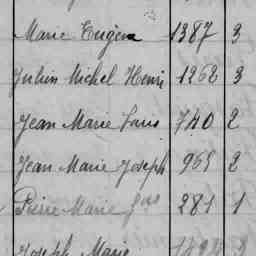 Marie Eugène 1387 3
Julien Michel Henri 1262 3
Jean Marie Louis 740 2
Jean Marie Joseph 965 2
Pierre Marie 281 1
Joseph Marie